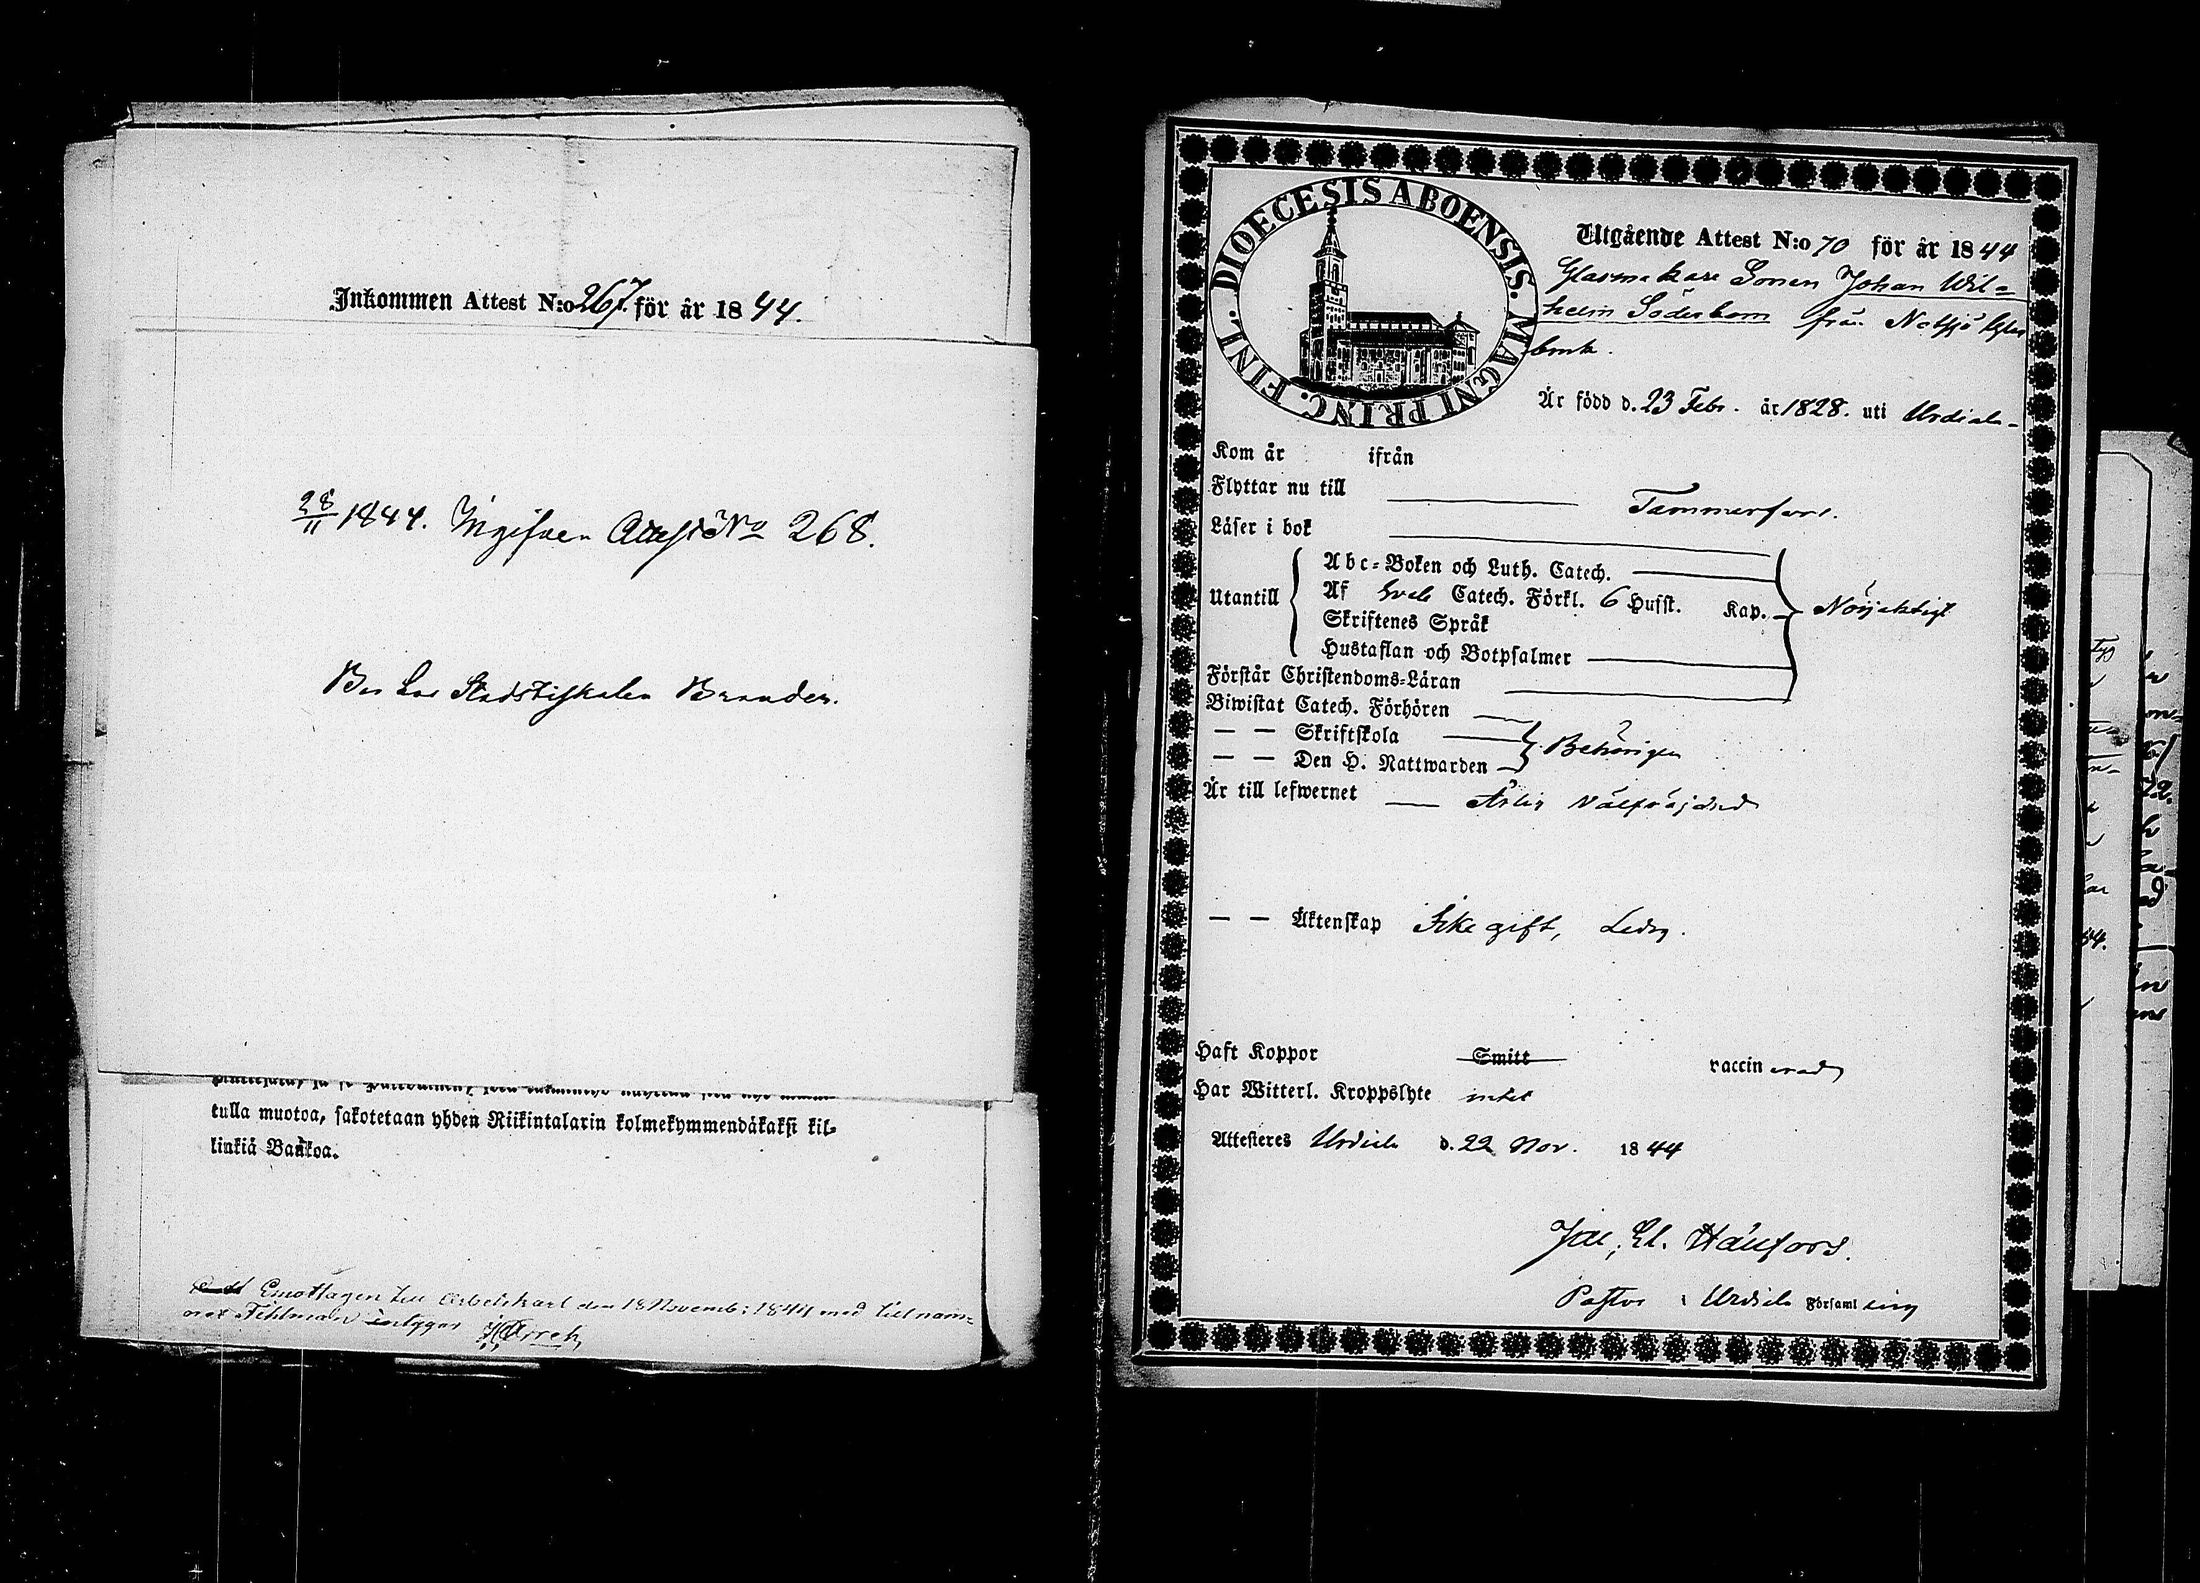 Inkommen Attest N:o 267. för år 1844.
28/11 1844. Ingifven Attest No 268.
Bor hos Stadsfiskalen Brander.
tulla muotoa, sakotetaan yhden Riikintalarin kolmekymmendäkaksi kil-
linkiä Bankoa.
Emottagen till Arbetskarl den 18 Novemb: 1844 med tillnam-
net Fihlman intygar
DIOECESIS ABOENSIS. MAGNI PRINC. FINL.
Utgående Attest N:o 70 för år 1844
Glasmakare Sonen Johan Wil=
helm Söderbom från Notsjö Glas
bruk.
Är född d. 23 Febr. år 1828. uti Urdiala
Kom år ifrån
Flyttar nu till Tammerfors.
Läser i bok
Utantill
Abc-Boken och Luth. Catech.
Af Sveb Catech. Förkl. 6 Husst. Kap. Nöjaktigt
Skriftenes Språk
Hustaflan och Botpsalmer
Förstår Christendoms-Läran
Biwistat Catech. Förhören
— — Skriftskola Behörigen
— — Den H. Nattwarden
Är till lefwernet Ärlig välfrejdad
— — Äktenskap Icke gift, Ledig.
Haft Koppor Smitt vaccinerad
Har Witterl. Kroppslyte intet
Attesteres Urdiala d. 22 Nov. 1844
Jac. El. Hällfors.
Pastor i Urdiala Församling